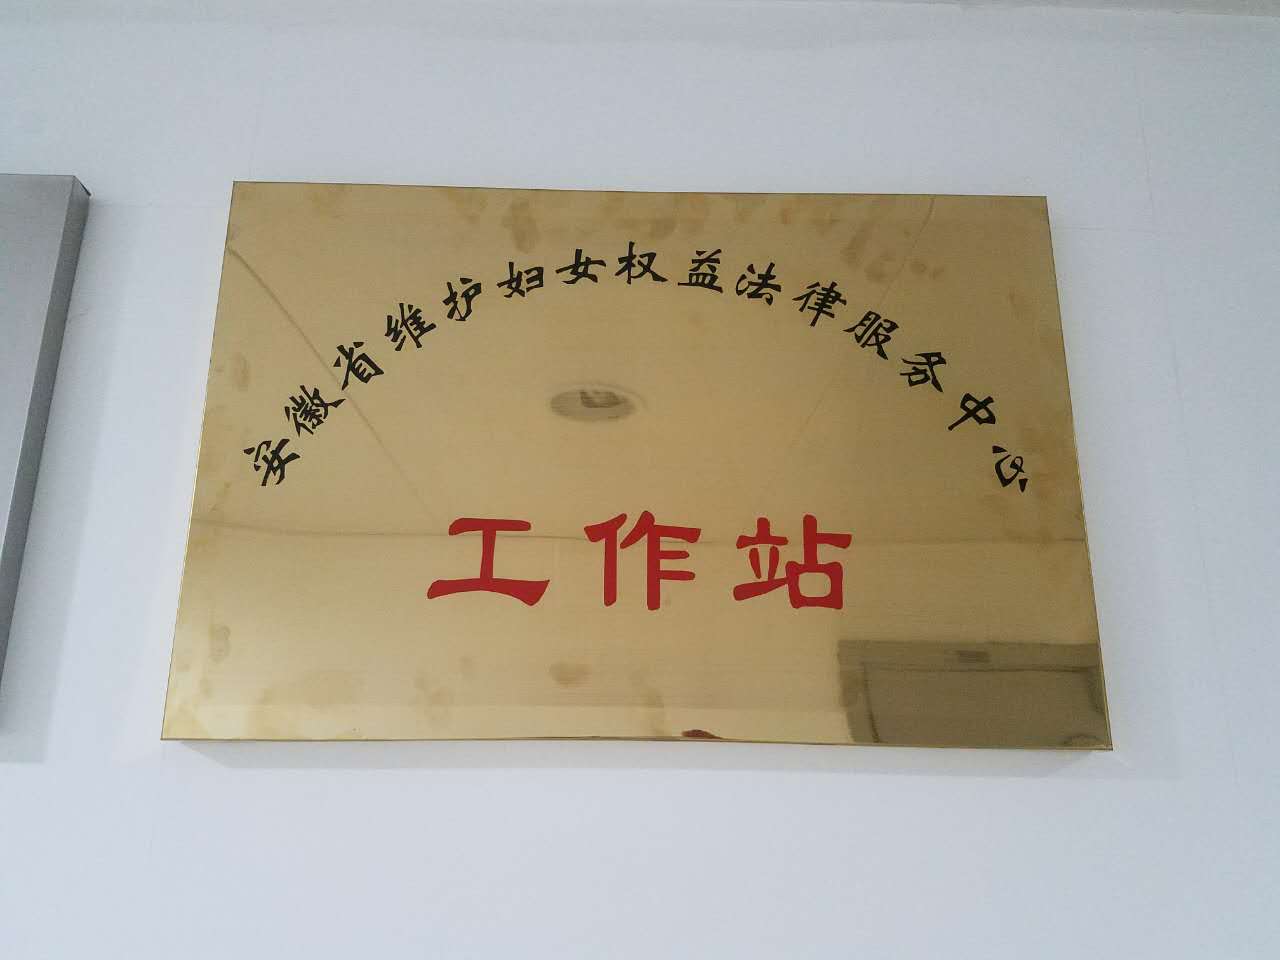 安徽省维护妇女权益法律服务中心
工作站